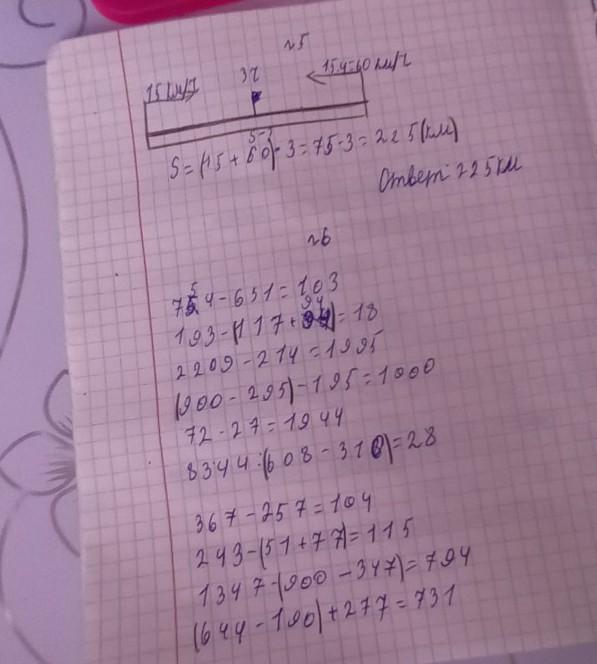 №5
15 км/ч
3ч
15·4=60 км/ч
S=(15+60)·3=75·3=225(км)
Ответ: 225 км
№6
754-651=103
193-(117+94)=18
2209-214=1995
(900-295)-195=1000
72·27=1944
8344:(608-310)=28
367-257=104
243-(51+77)=115
1347-(900-347)=794
(644-190)+277=731